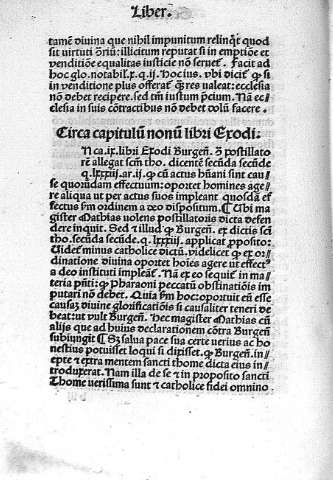 Liber.
tamẽ diuina que nihil impunitum relinq̃t quod
sit virtuti ꝯriũ: illicitum reputat si in emptiõe et
venditiõe equalitas iusticie nõ seruet᷑. Facit ad
hoc glo. notabil. x. q. ij. hoc ius. vbi dicit᷑ ꝙ si
in venditione plus offerat᷑ ꝙ res valeat: ecclesia
nõ debet recipere. sed tm̃ iustum p̃cium. Nã ec⸗
clesia in suis cõtractibus nõ debet dolũ facere.
Circa capitulũ nonũ libri Exodi:
Nca. ix. libri Exodi Burgeñ. ꝯ postillato
rẽ allegat scm̃ tho. dicentẽ secũda secũde
q. lxxxiij. ar. ij. ꝙ cũ actus hũani sint cau⸗
se quorũdam effectuum: oportet homines age⸗
re aliqua ut per actus suos impleant quosdã ef
fectus fm̃ ordinem a deo dispositum. ¶ Ubi ma
gister Mathias volens postillatoris dicta defen
dere inquit. Sed et illud ꝙ Burgeñ. ex dictis scti
tho. secũda secũde. q. lxxxiij. applicat ꝓposito:
videt᷑ minus catholice dictũ. videlicet ꝙ ex or⸗
dinatione diuina oportet hoĩes agere ut effect᷒
a deo instituti impleant᷑. Nã ex eo sequit᷑ in ma⸗
teria p̃nti: ꝙ Pharaoni peccatũ obstinatiõis im
putari nõ debet. Quia fm̃ hoc: oportuit eũ esse
causaȝ diuine glorificatiõis si causaliter teneri de
beat: vult Burgeñ. Hec magister Mathias cũ
alijs que ad huius declarationem cõtra Burgeñ
subiungit ¶ Sȝ salua pace sua certe verius ac ho
nestius potuisset loqui si dixisset. ꝙ Burgeñ. in⸗
epte et extra mentem sancti thome dicta eius in⸗
troduxerat. Nam illa de se et in proposito sancti
Thome verissima sunt et catholice fidei omnino